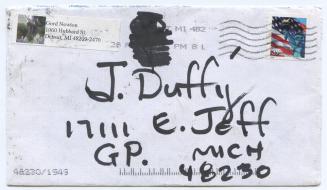 Gord Newton
1060 Hubbard St.
Detroit, MI 48209-2476
MI 482
28
PM 8 L
J. Duffy
17111 E. Jeff
GP. MICH
48230
48230/1949